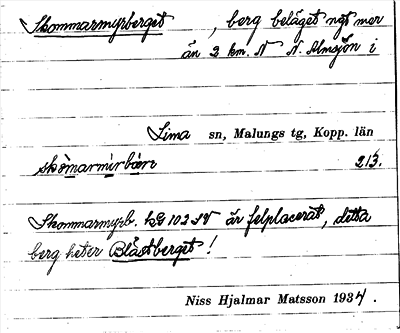 Skommarmyrberget, berg beläget ngt mer
än 2 km. N N. Almsjön i
Lima sn, Malungs tg, Kopp. län
skòmarmìrbære 213.
Skommarmyrb. kG 102 SV är felplacerat, detta
berg heter Blåstberget!
Niss Hjalmar Matsson 1934.